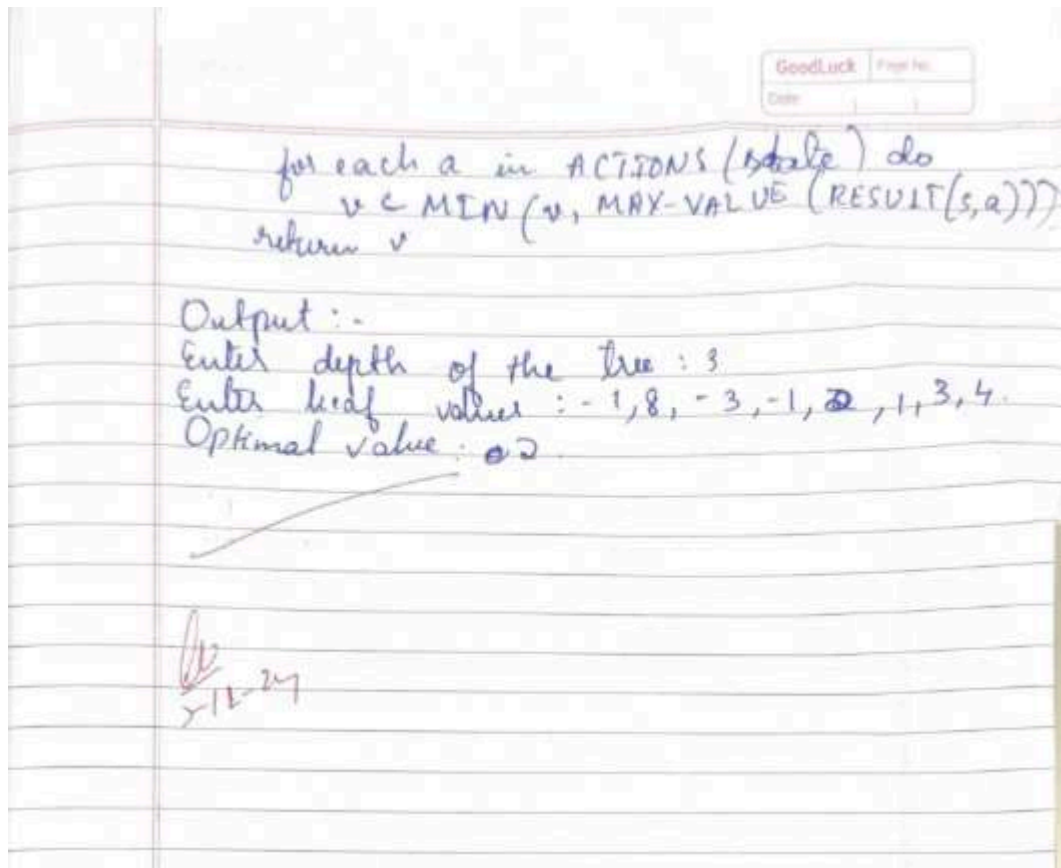 GoodLuck Page No.
Date
for each a in ACTIONS (state) do
v ← MIN (v, MAX-VALUE (RESULT(s,a)))
return v
Output :-
Enter depth of the tree : 3
Enter leaf values : -1, 8, -3, -1, 2, 1, 3, 4.
Optimal value : 2.
-12-24